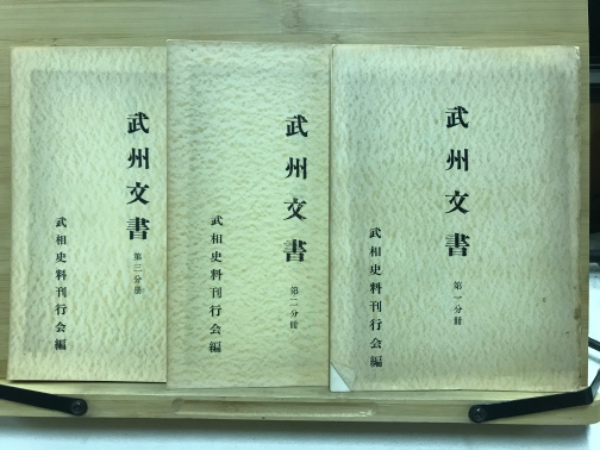 武州文書
第一分冊
武相史料刊行会編
武州文書
第二分冊
武相史料刊行会編
武州文書
第三分冊
武相史料刊行会編